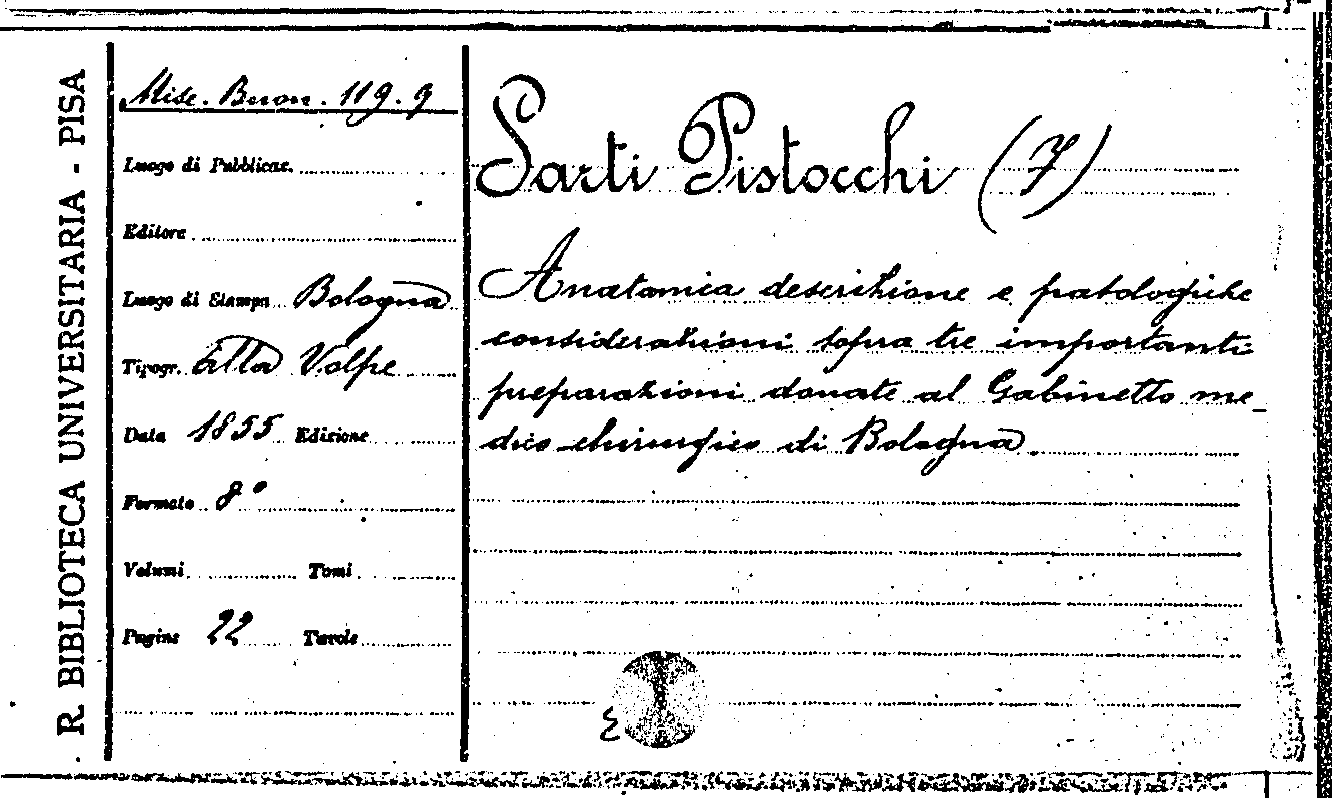 R. BIBLIOTECA UNIVERSITARIA - PISA
Misc. Buon. 119. 9
Luogo di Pubblicaz.
Editore
Luogo di Stampa Bologna
Tipogr. Alla Volpe
Data 1855 Edizione
Formato 8°
Volumi Tomi
Pagine 22 Tavole
Sarti Pistocchi (F)
Anatomica descrizione e patologiche
considerazioni sopra tre importanti
preparazioni donate al Gabinetto me-
dico-chirurgico di Bologna.